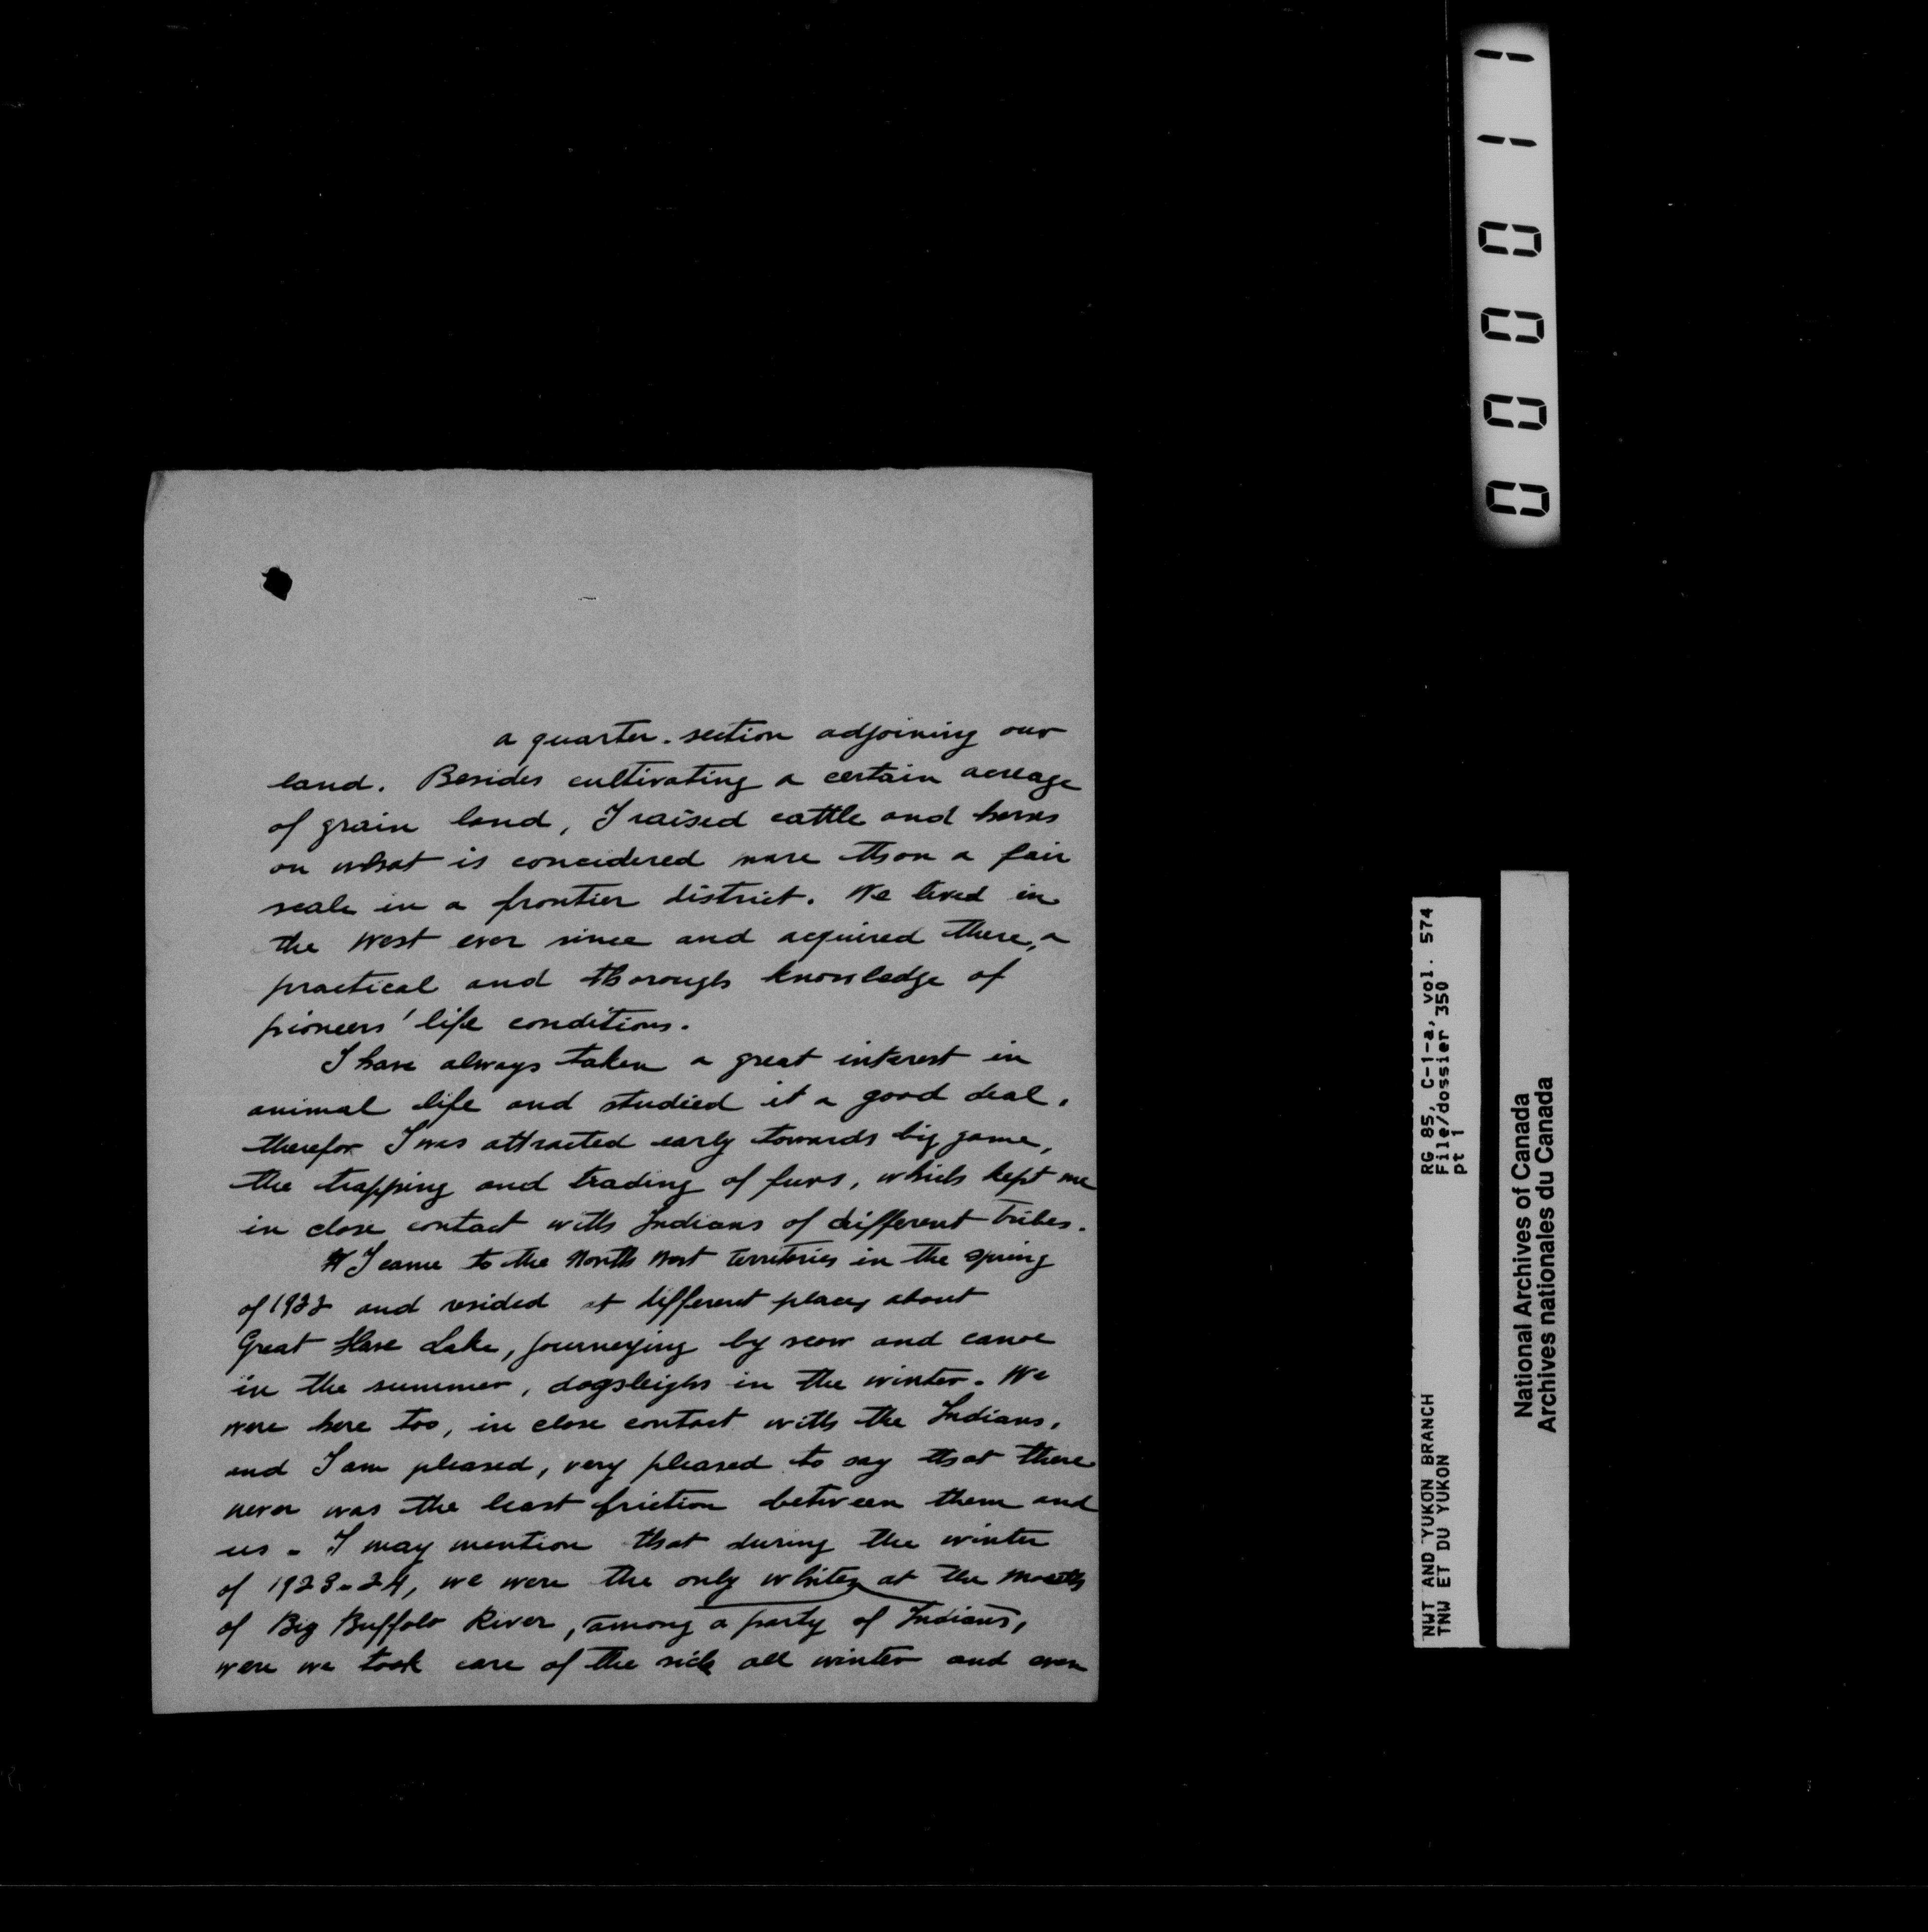 a quarter-section adjoining our
land. Besides cultivating a certain acreage
of grain land, I raised cattle and horses
on what is concidered more than a fair
scale in a frontier district. We lived in
the West ever since and acquired there, a
practical and thorough knowledge of
pioneers' life conditions.
I have always taken a great interest in
animal life and studied it a good deal,
therefor I was attracted early towards big game,
the trapping and trading of furs, which kept me
in close contact with Indians of different tribes.
I came to the North West Territories in the spring
of 1922 and resided at different places about
Great Slave Lake, journeying by scow and canoe
in the summer, dogsleighs in the winter. We
were here too, in close contact with the Indians,
and I am pleased, very pleased to say that there
never was the least friction between them and
us - I may mention that during the winter
of 1923-24, we were the only whites at the mouth
of Big Buffalo River, among a party of Indians,
were we took care of the sick all winter and even
000011
RG 85, C-1-a, vol. 574
File/dossier 350
pt 1
NWT AND YUKON BRANCH
TNW ET DU YUKON
National Archives of Canada
Archives nationales du Canada